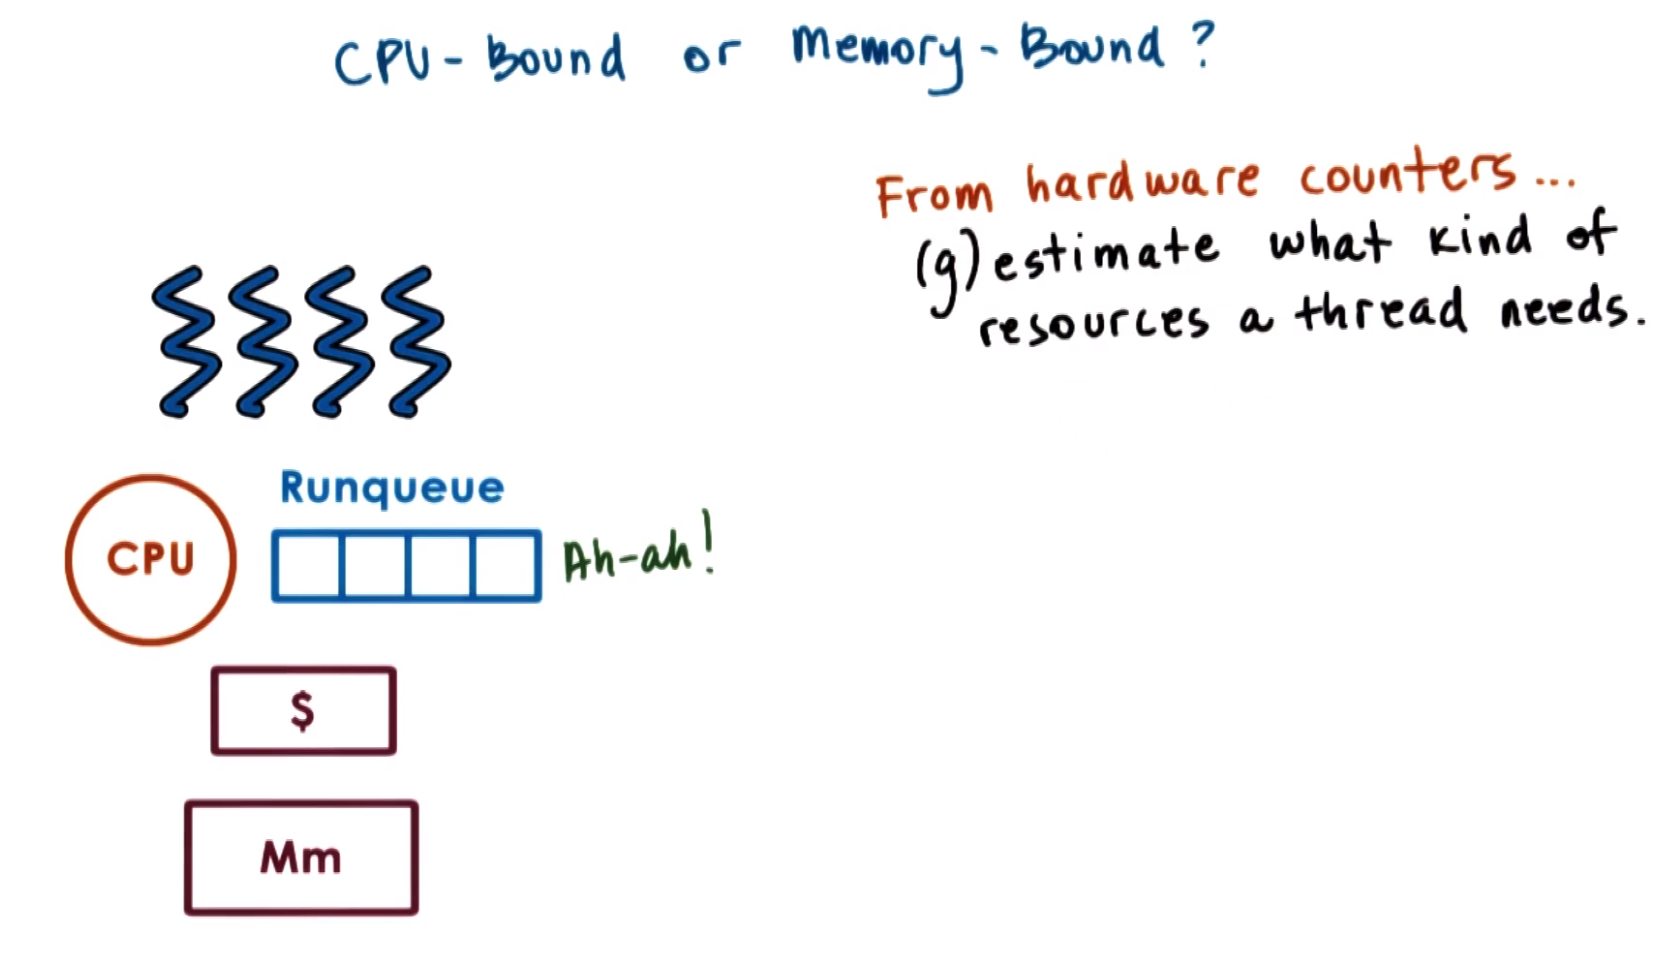 CPU-Bound or Memory-Bound?
From hardware counters...
(g)estimate what kind of
resources a thread needs.
Runqueue
CPU
Ah-ah!
$
Mm